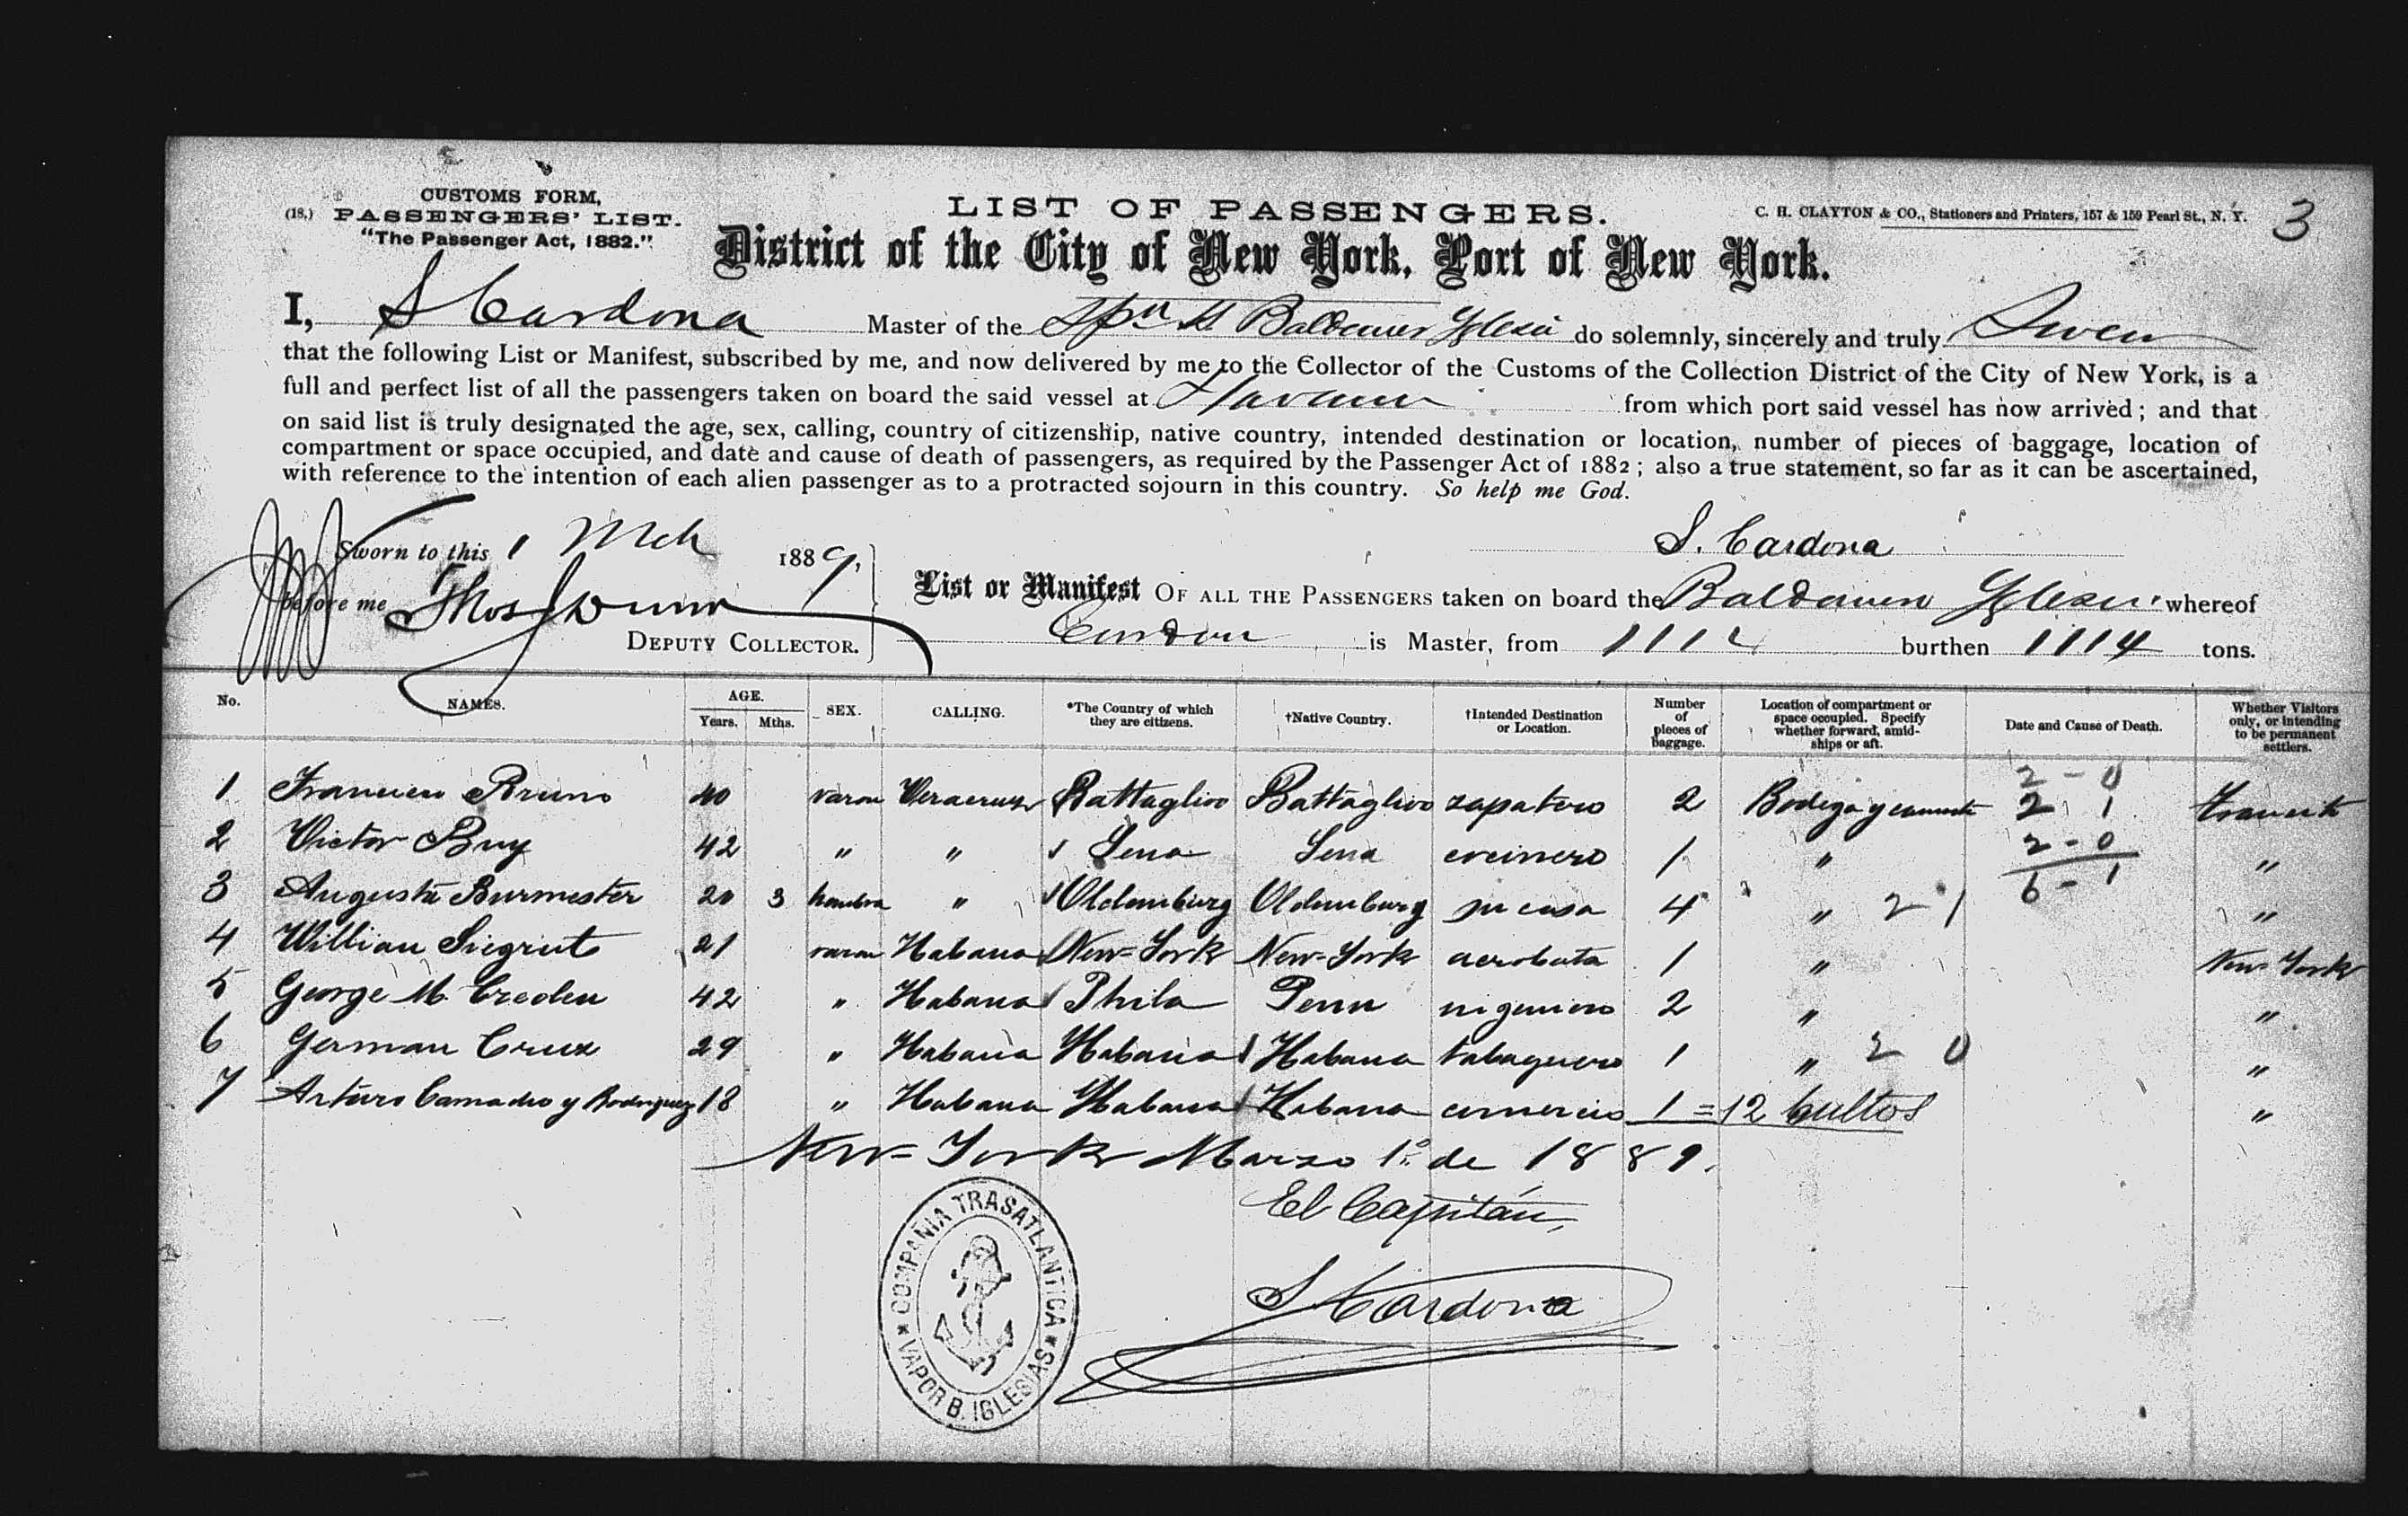 CUSTOMS FORM,
(18,) PASSENGERS' LIST.
"The Passenger Act, 1882."
LIST OF PASSENGERS.
C. H. CLAYTON & CO., Stationers and Printers, 157 & 159 Pearl St., N. Y.
3
District of the City of New York, Port of New York.
I, S Cardona Master of the Spn St Baldomer Yglesia do solemnly, sincerely and truly Swear
that the following List or Manifest, subscribed by me, and now delivered by me to the Collector of the Customs of the Collection District of the City of New York, is a
full and perfect list of all the passengers taken on board the said vessel at Havana from which port said vessel has now arrived; and that
on said list is truly designated the age, sex, calling, country of citizenship, native country, intended destination or location, number of pieces of baggage, location of
compartment or space occupied, and date and cause of death of passengers, as required by the Passenger Act of 1882; also a true statement, so far as it can be ascertained,
with reference to the intention of each alien passenger as to a protracted sojourn in this country. So help me God.
S. Cardona
Sworn to this 1 Mch 1889,
before me Thos Dunn
DEPUTY COLLECTOR.
List or Manifest OF ALL THE PASSENGERS taken on board the Baldomero Yglesias whereof
Cardona is Master, from burthen 1114 tons.
No. NAMES. AGE. Years. Mths. SEX. CALLING. *The Country of which they are citizens. †Native Country. †Intended Destination or Location. Number of pieces of baggage. Location of compartment or space occupied. Specify whether forward, amidships or aft. Date and Cause of Death. Whether Visitors only, or intending to be permanent settlers.
1 Francisco Bruno 40 varon Veracruz Battaglioo Battaglioo zapatero 2 Bodega y camarote 2 - 0 2 1 Transito
2 Victor Buy 42 " " Sena Sena cocinero 1 " 2 - 0 "
3 Augusta Burmester 20 3 hembra " Oldemburg Oldemburg su casa 4 " 2 1 6 - 1 "
4 William Siegrist 21 varon Habana New-York New-York acrobata 1 " New York
5 George M. Creden 42 " Habana Phila Penn ingeniero 2 " "
6 German Cruz 29 " Habana Habana Habana tabaquero 1 " 2 0 "
7 Arturo Camacho y Rodriguez 18 " Habana Habana Habana comercio 1 = 12 bultos "
New-York Marzo 1º de 1889.
El Capitán,
S Cardona
COMPAÑIA TRASATLANTICA
VAPOR B. IGLESIAS